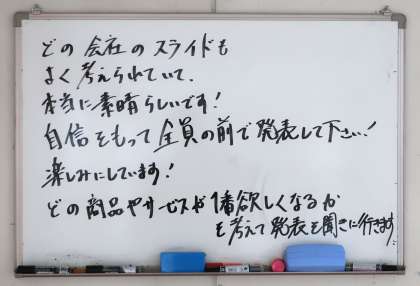 どの会社のスライドも
よく考えられていて、
本当に素晴らしいです!
自信をもって全員の前で発表して下さい!
楽しみにしています!
どの商品やサービスが1番欲しくなるか
を考えて発表を聞きに行きます。